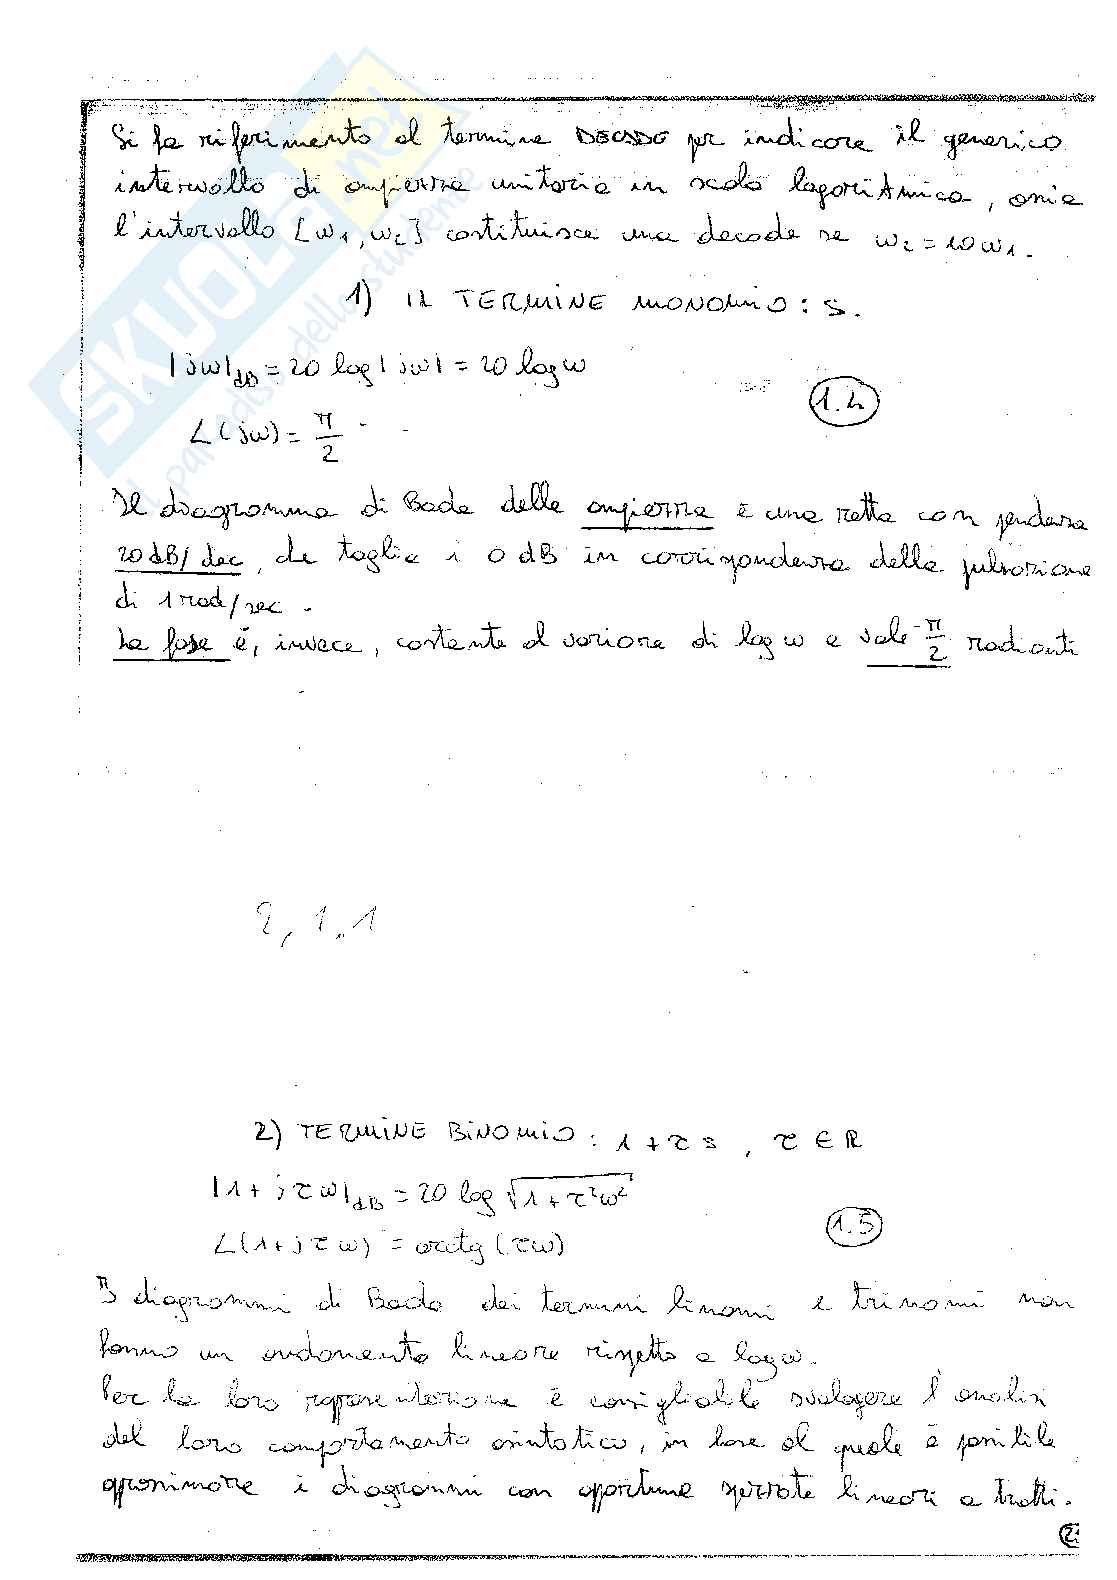 Si fa riferimento al termine DECADE per indicare il generico
intervallo di ampiezza unitaria in scala logaritmica, ossia
l'intervallo [ω1, ω2] costituisce una decade se ω2 = 10 ω1.
1) IL TERMINE MONOMIO: s.
|jω|dB = 20 log|jω| = 20 log ω
1.4
∠(jω) = π/2
Il diagramma di Bode delle ampiezze è una retta con pendenza
20 dB/dec, che taglia i 0 dB in corrispondenza della pulsazione
di 1 rad/sec.
La fase è, invece, costante al variare di log ω e vale π/2 radianti
2, 1.1
2) TERMINE BINOMIO: 1 + τs, τ ∈ R
|1 + jτω|dB = 20 log √(1 + τ²ω²)
1.5
∠(1 + jτω) = arctg (τω)
I diagrammi di Bode dei termini binomi e trinomi non
hanno un andamento lineare rispetto a log ω.
Per la loro rappresentazione è consigliabile svolgere l'analisi
del loro comportamento asintotico, in base al quale è possibile
approssimare i diagrammi con opportune spezzate lineari a tratti.
SKUOLA.net
il paradiso dello studente